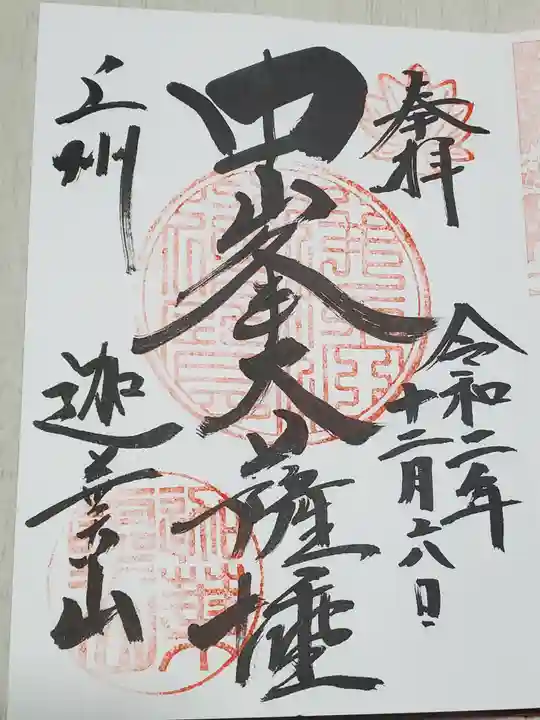 奉拝
令和二年
十二月六日
中峯大薩埵
上州
迦葉山